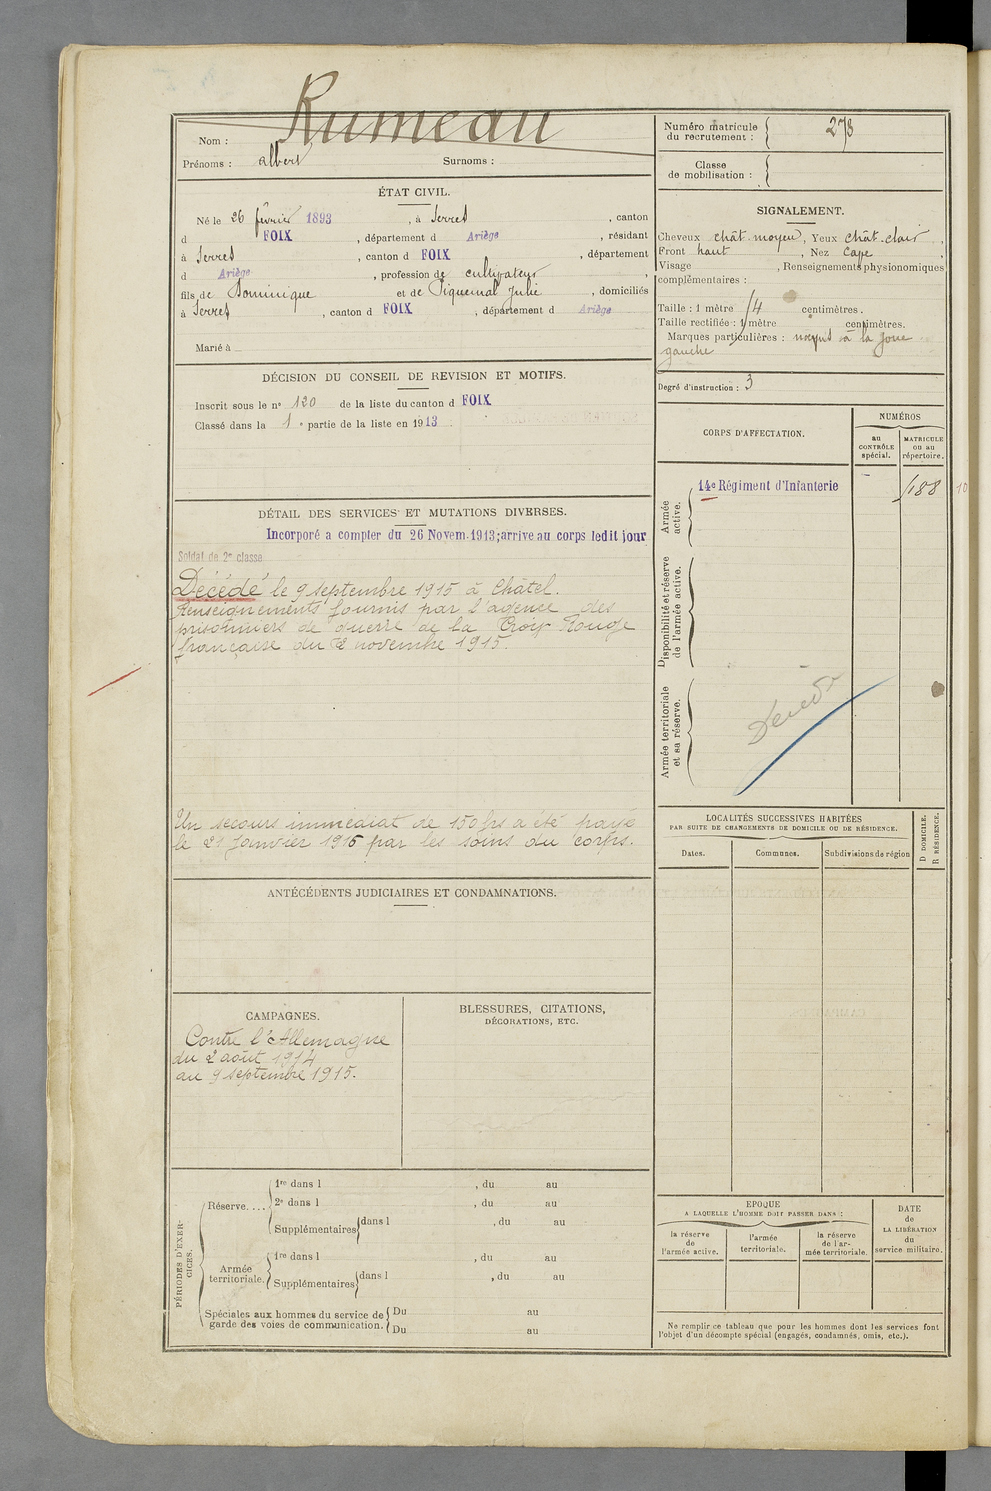 Rumeau
Nom :
Prénoms : albert Surnoms :
ÉTAT CIVIL.
Né le 26 février 1893, à Serres, canton
d FOIX, département d Ariège, résidant
à Serres, canton d FOIX, département
d Ariège, profession de cultivateur
fils de Dominique et de Piquemal Julie, domiciliés
à Serres, canton d FOIX, département d Ariège
Marié à
DÉCISION DU CONSEIL DE REVISION ET MOTIFS.
Inscrit sous le n° 120 de la liste du canton d FOIX
Classé dans la 1e partie de la liste en 1913
DÉTAIL DES SERVICES ET MUTATIONS DIVERSES.
Incorporé a compter du 26 Novem. 1913; arrive au corps ledit jour
Soldat de 2e classe
Décédé le 9 septembre 1915 à Châtel.
Renseignements fournis par l'agence des
prisonniers de guerre de la Croix Rouge
française du 2 novembre 1915.
Un secours immédiat de 150 frs a été payé
le 21 Janvier 1916 par les soins du corps.
ANTÉCÉDENTS JUDICIAIRES ET CONDAMNATIONS.
CAMPAGNES.
Contre l'Allemagne
du 2 août 1914
au 9 septembre 1915.
BLESSURES, CITATIONS,
DÉCORATIONS, ETC.
PÉRIODES D'EXER-
CICES.
Réserve....
1re dans l , du au
2e dans l , du au
Supplémentaires dans l , du au
Armée
territoriale.
1re dans l , du au
Supplémentaires dans l , du au
Spéciales aux hommes du service de
garde des voies de communication.
Du au
Du au
Numéro matricule
du recrutement : 278
Classe
de mobilisation :
SIGNALEMENT.
Cheveux chât. moyen, Yeux chât. clair,
Front haut, Nez Cave,
Visage , Renseignements physionomiques
complémentaires :
Taille : 1 mètre centimètres.
Taille rectifiée : 1 mètre centimètres.
Marques particulières : à la joue
gauche
Degré d'instruction : 3
CORPS D'AFFECTATION.
NUMÉROS
au
CONTRÔLE
spécial.
MATRICULE
ou au
répertoire.
Armée
active.
14e Régiment d'Infanterie
10
Disponibilité et réserve
de l'armée active.
Armée territoriale
et sa réserve.
Décédé
LOCALITÉS SUCCESSIVES HABITÉES
PAR SUITE DE CHANGEMENTS DE DOMICILE OU DE RÉSIDENCE.
Dates.
Communes.
Subdivisions de région
D DOMICILE.
R RÉSIDENCE.
EPOQUE
A LAQUELLE L'HOMME DOIT PASSER DANS :
la réserve
de
l'armée active.
l'armée
territoriale.
la réserve
de l'ar-
mée territoriale.
DATE
de
LA LIBÉRATION
du
service militaire.
Ne remplir ce tableau que pour les hommes dont les services font
l'objet d'un décompte spécial (engagés, condamnés, omis, etc.).